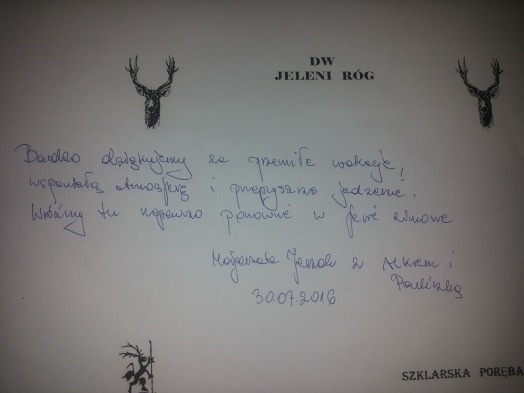 DW
JELENI RÓG
Bardzo dziękujemy za przemiłe wakacje!
wspaniałą atmosferę i przepyszne jedzenie.
Wrócimy tu napewno ponownie w ferie zimowe.
Małgorzata z i
Paulinką
30.07.2016
SZKLARSKA PORĘBA